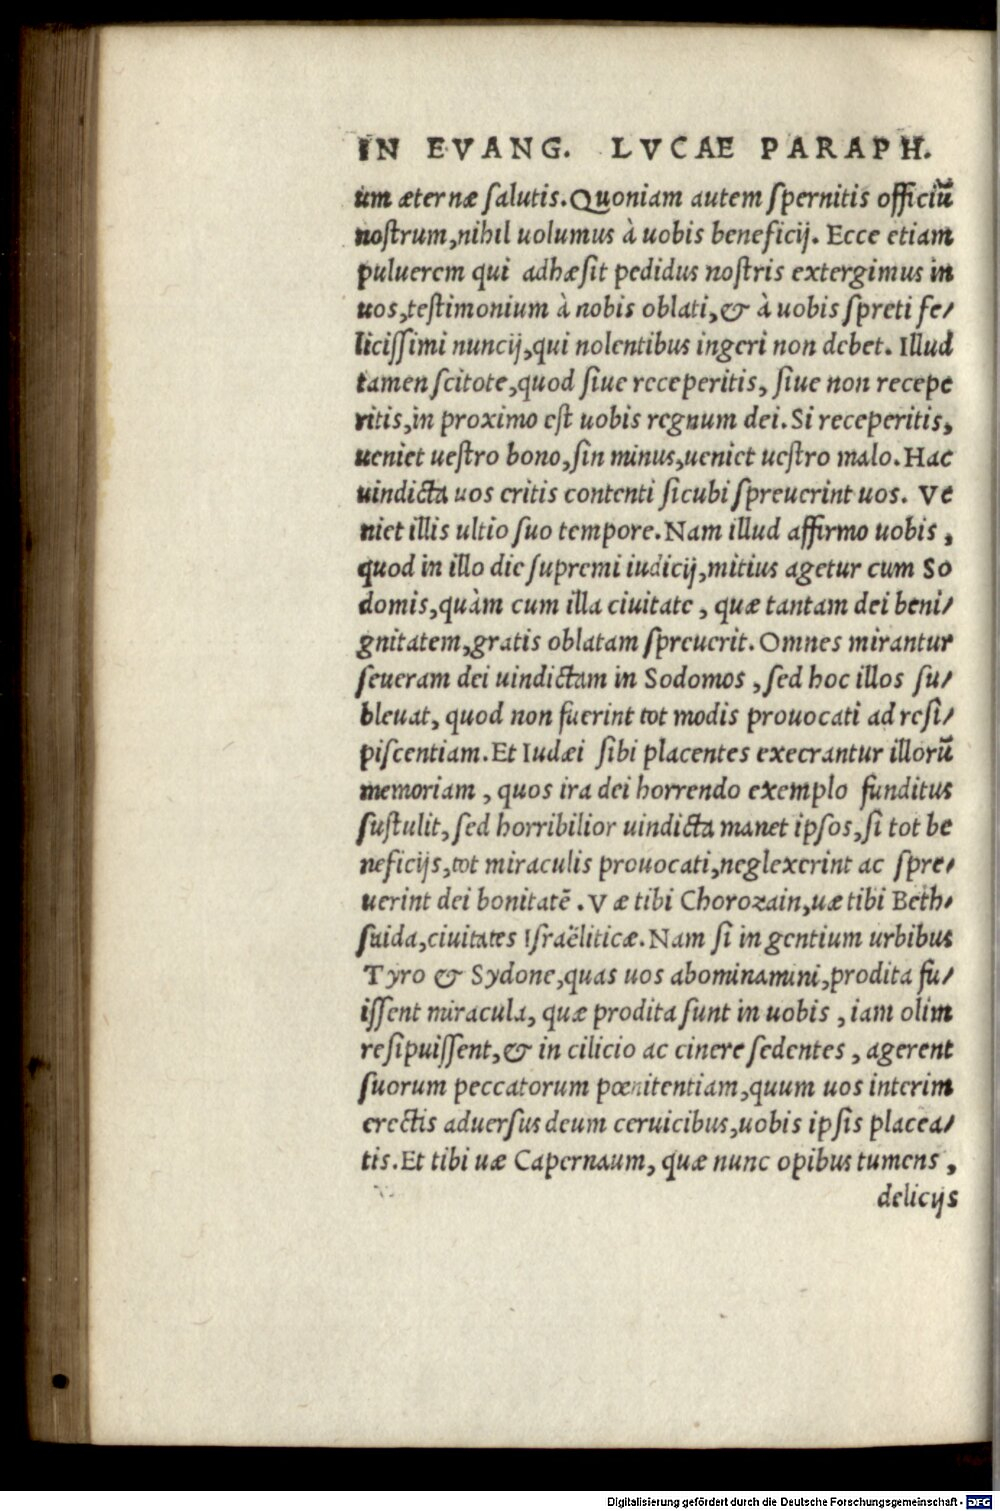 IN EVANG. LVCAE PARAPH.
um æternæ ſalutis. Quoniam autem ſpernitis officiũ
noſtrum, nihil uolumus à uobis beneficij. Ecce etiam
puluerem qui adhæſit pedidus noſtris extergimus in
uos, teſtimonium à nobis oblati, & à uobis ſpreti fe/
liciſſimi nuncij, qui nolentibus ingeri non debet. Illud
tamen ſcitote, quod ſiue receperitis, ſiue non recepe
ritis, in proximo eſt uobis regnum dei. Si receperitis,
ueniet ueſtro bono, ſin minus, ueniet ueſtro malo. Hac
uindicta uos eritis contenti ſicubi ſpreuerint uos. Ve
niet illis ultio ſuo tempore. Nam illud affirmo uobis,
quod in illo die ſupremi iudicij, mitius agetur cum So
domis, quàm cum illa ciuitate, quæ tantam dei beni/
gnitatem, gratis oblatam ſpreuerit. Omnes mirantur
ſeueram dei uindictam in Sodomos, ſed hoc illos ſu/
bleuat, quod non fuerint tot modis prouocati ad reſi/
piſcentiam. Et Iudæi ſibi placentes execrantur illorũ
memoriam, quos ira dei horrendo exemplo funditus
ſuſtulit, ſed horribilior uindicta manet ipſos, ſi tot be
neficijs, tot miraculis prouocati, neglexerint ac ſpre/
uerint dei bonitatẽ. Væ tibi Chorozain, uæ tibi Beth/
ſaida, ciuitates Iſraëliticæ. Nam ſi in gentium urbibus
Tyro & Sydone, quas uos abominamini, prodita fu/
iſſent miracula, quæ prodita ſunt in uobis, iam olim
reſipuiſſent, & in cilicio ac cinere ſedentes, agerent
ſuorum peccatorum pœnitentiam, quum uos interim
erectis aduerſus deum ceruicibus, uobis ipſis placea/
tis. Et tibi uæ Capernaum, quæ nunc opibus tumens,
delicijs
Digitalisierung gefördert durch die Deutsche Forschungsgemeinschaft - DFG